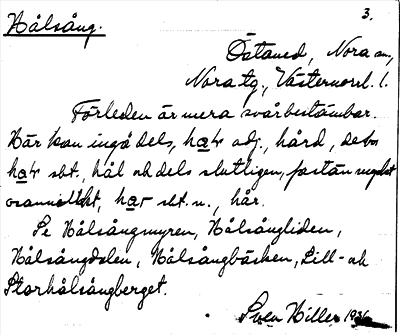 3.
Hålsång.
Östaned, Nora sn.,
Nora tg., Västernorrl. l.
Förleden är mera svårbestämbar.
Här kan ingå dels, adj., hård, dels
sbt., hål och dels slutligen, fastän mycket
osannolikt, sbt. n., hår.
Se Hålsångmyren, Hålsångliden,
Hålsångdalen, Hålsångbäcken, Lill- och
Storhålsångberget.
Sven Hiller 1936